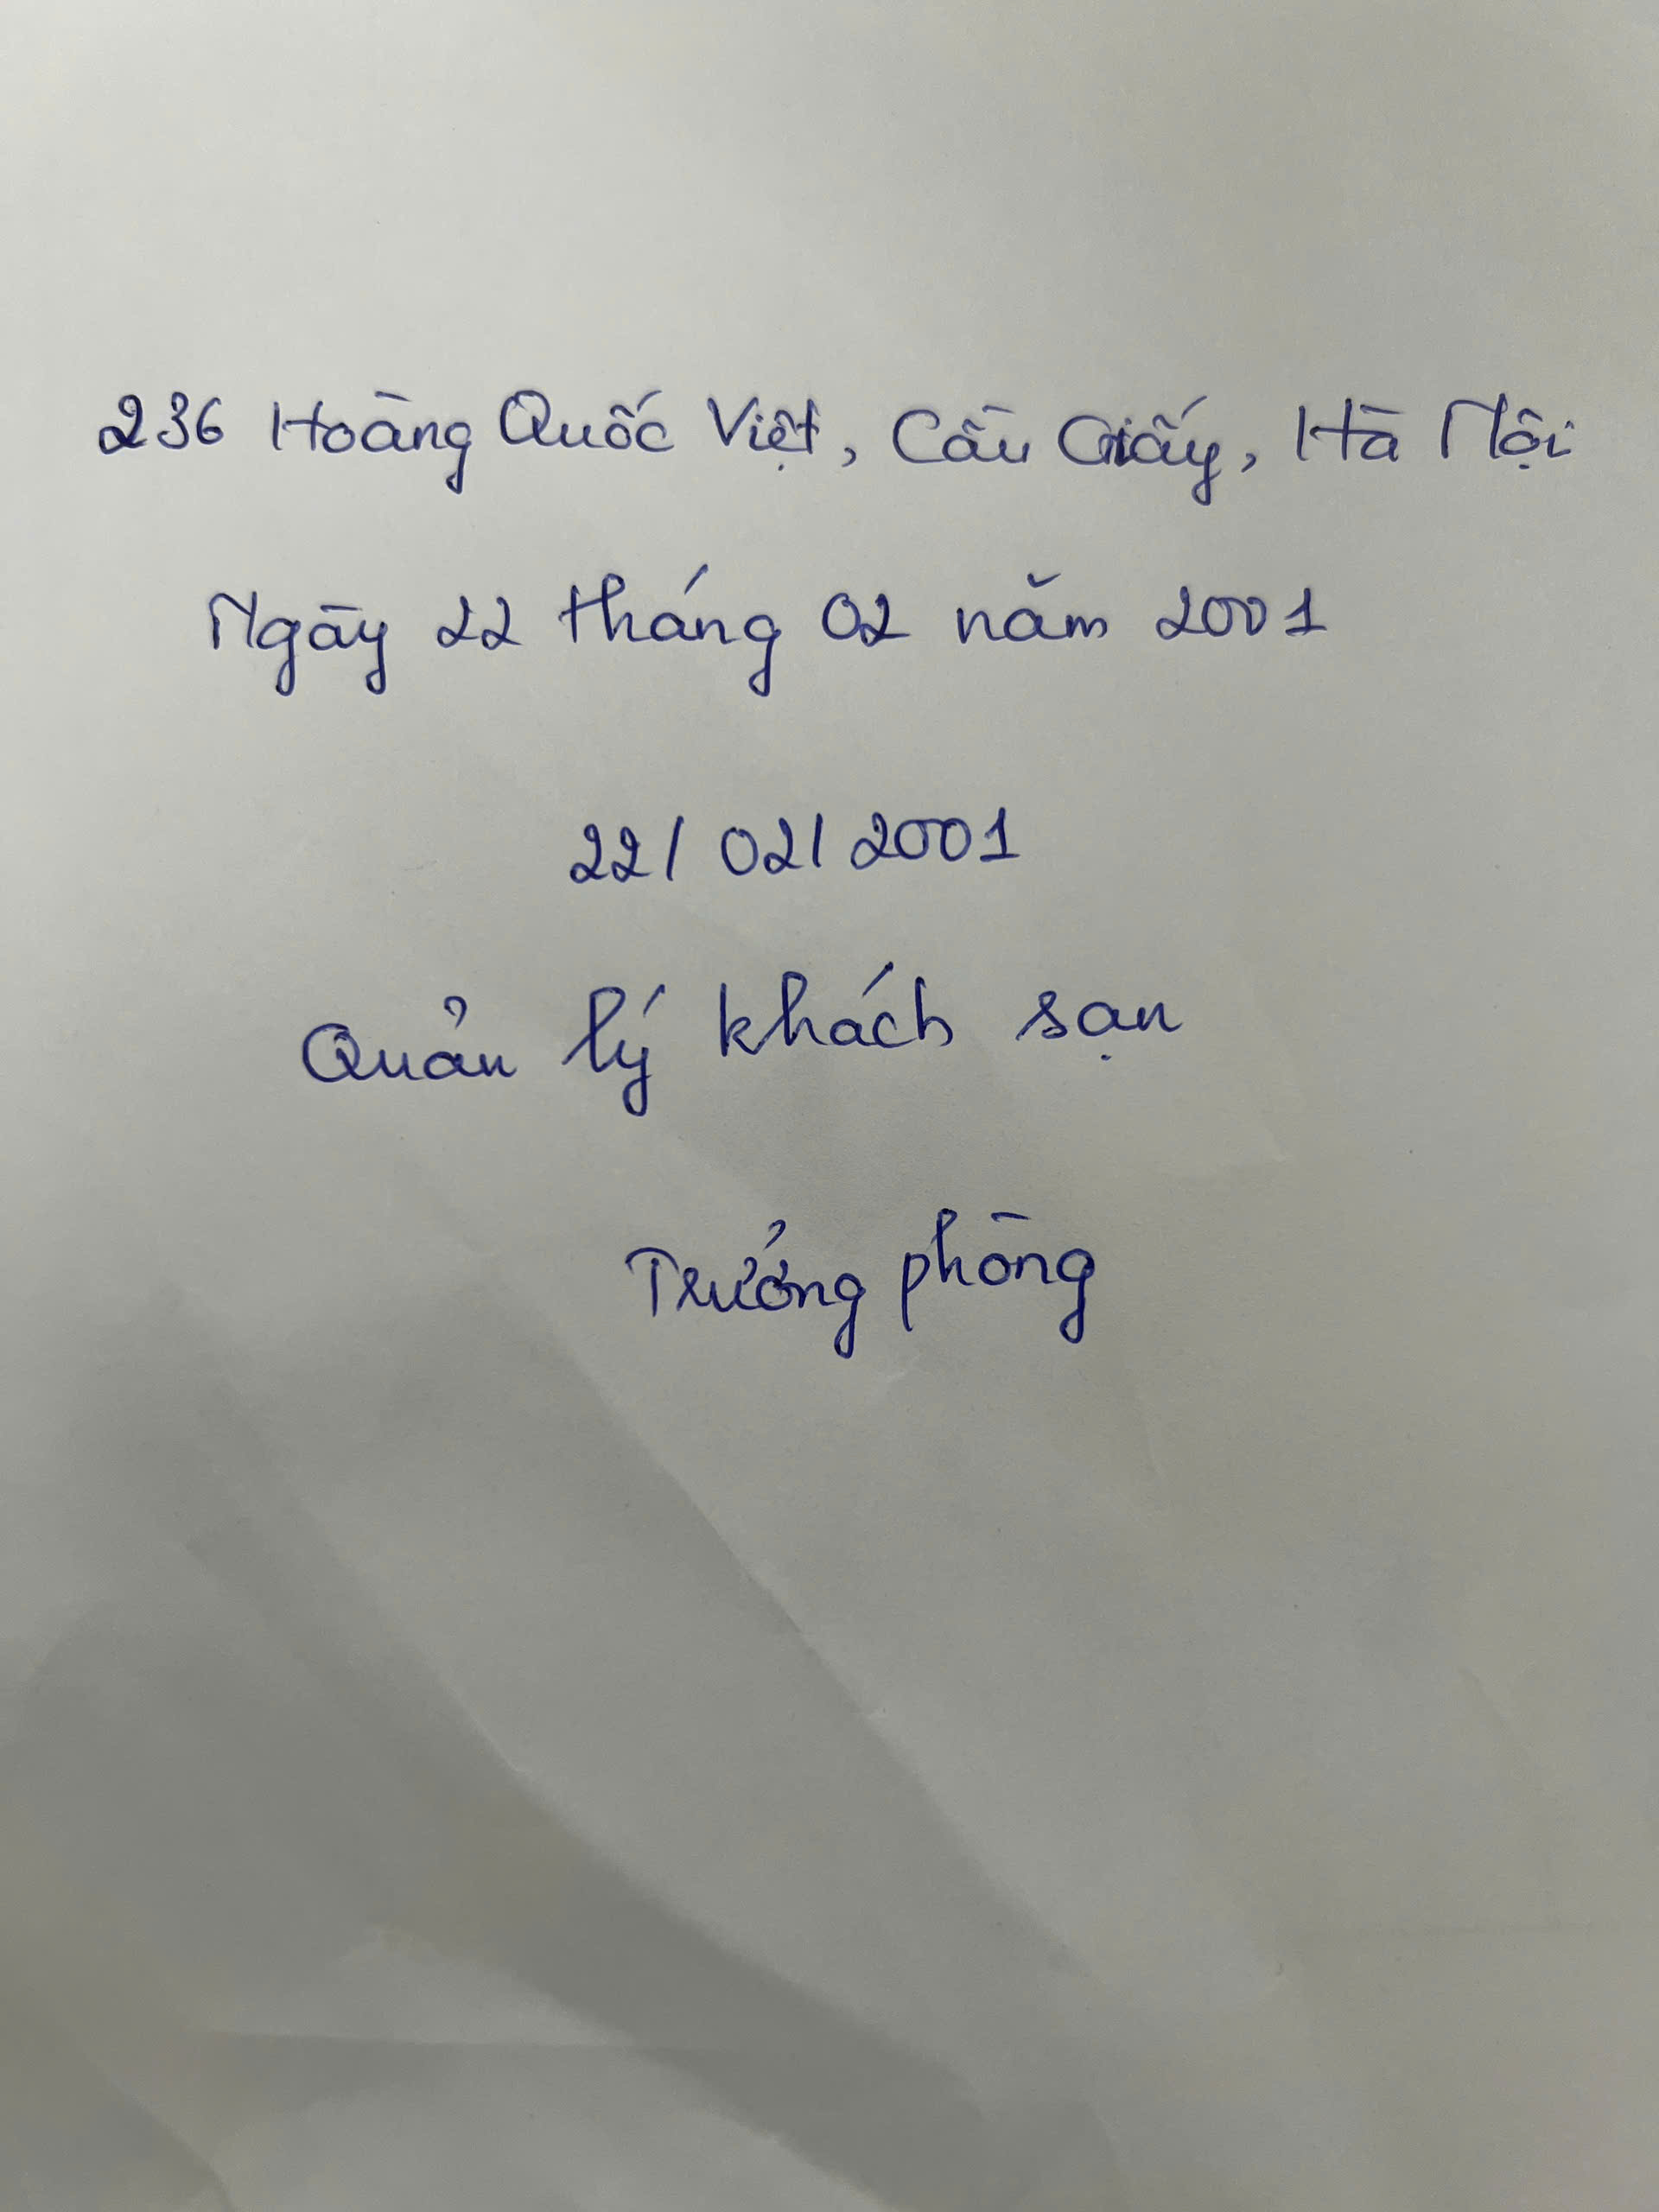 236 Hoàng Quốc Việt, Cầu Giấy, Hà Nội
Ngày 22 tháng 02 năm 2001
22/02/2001
Quản lý khách sạn
Trưởng phòng